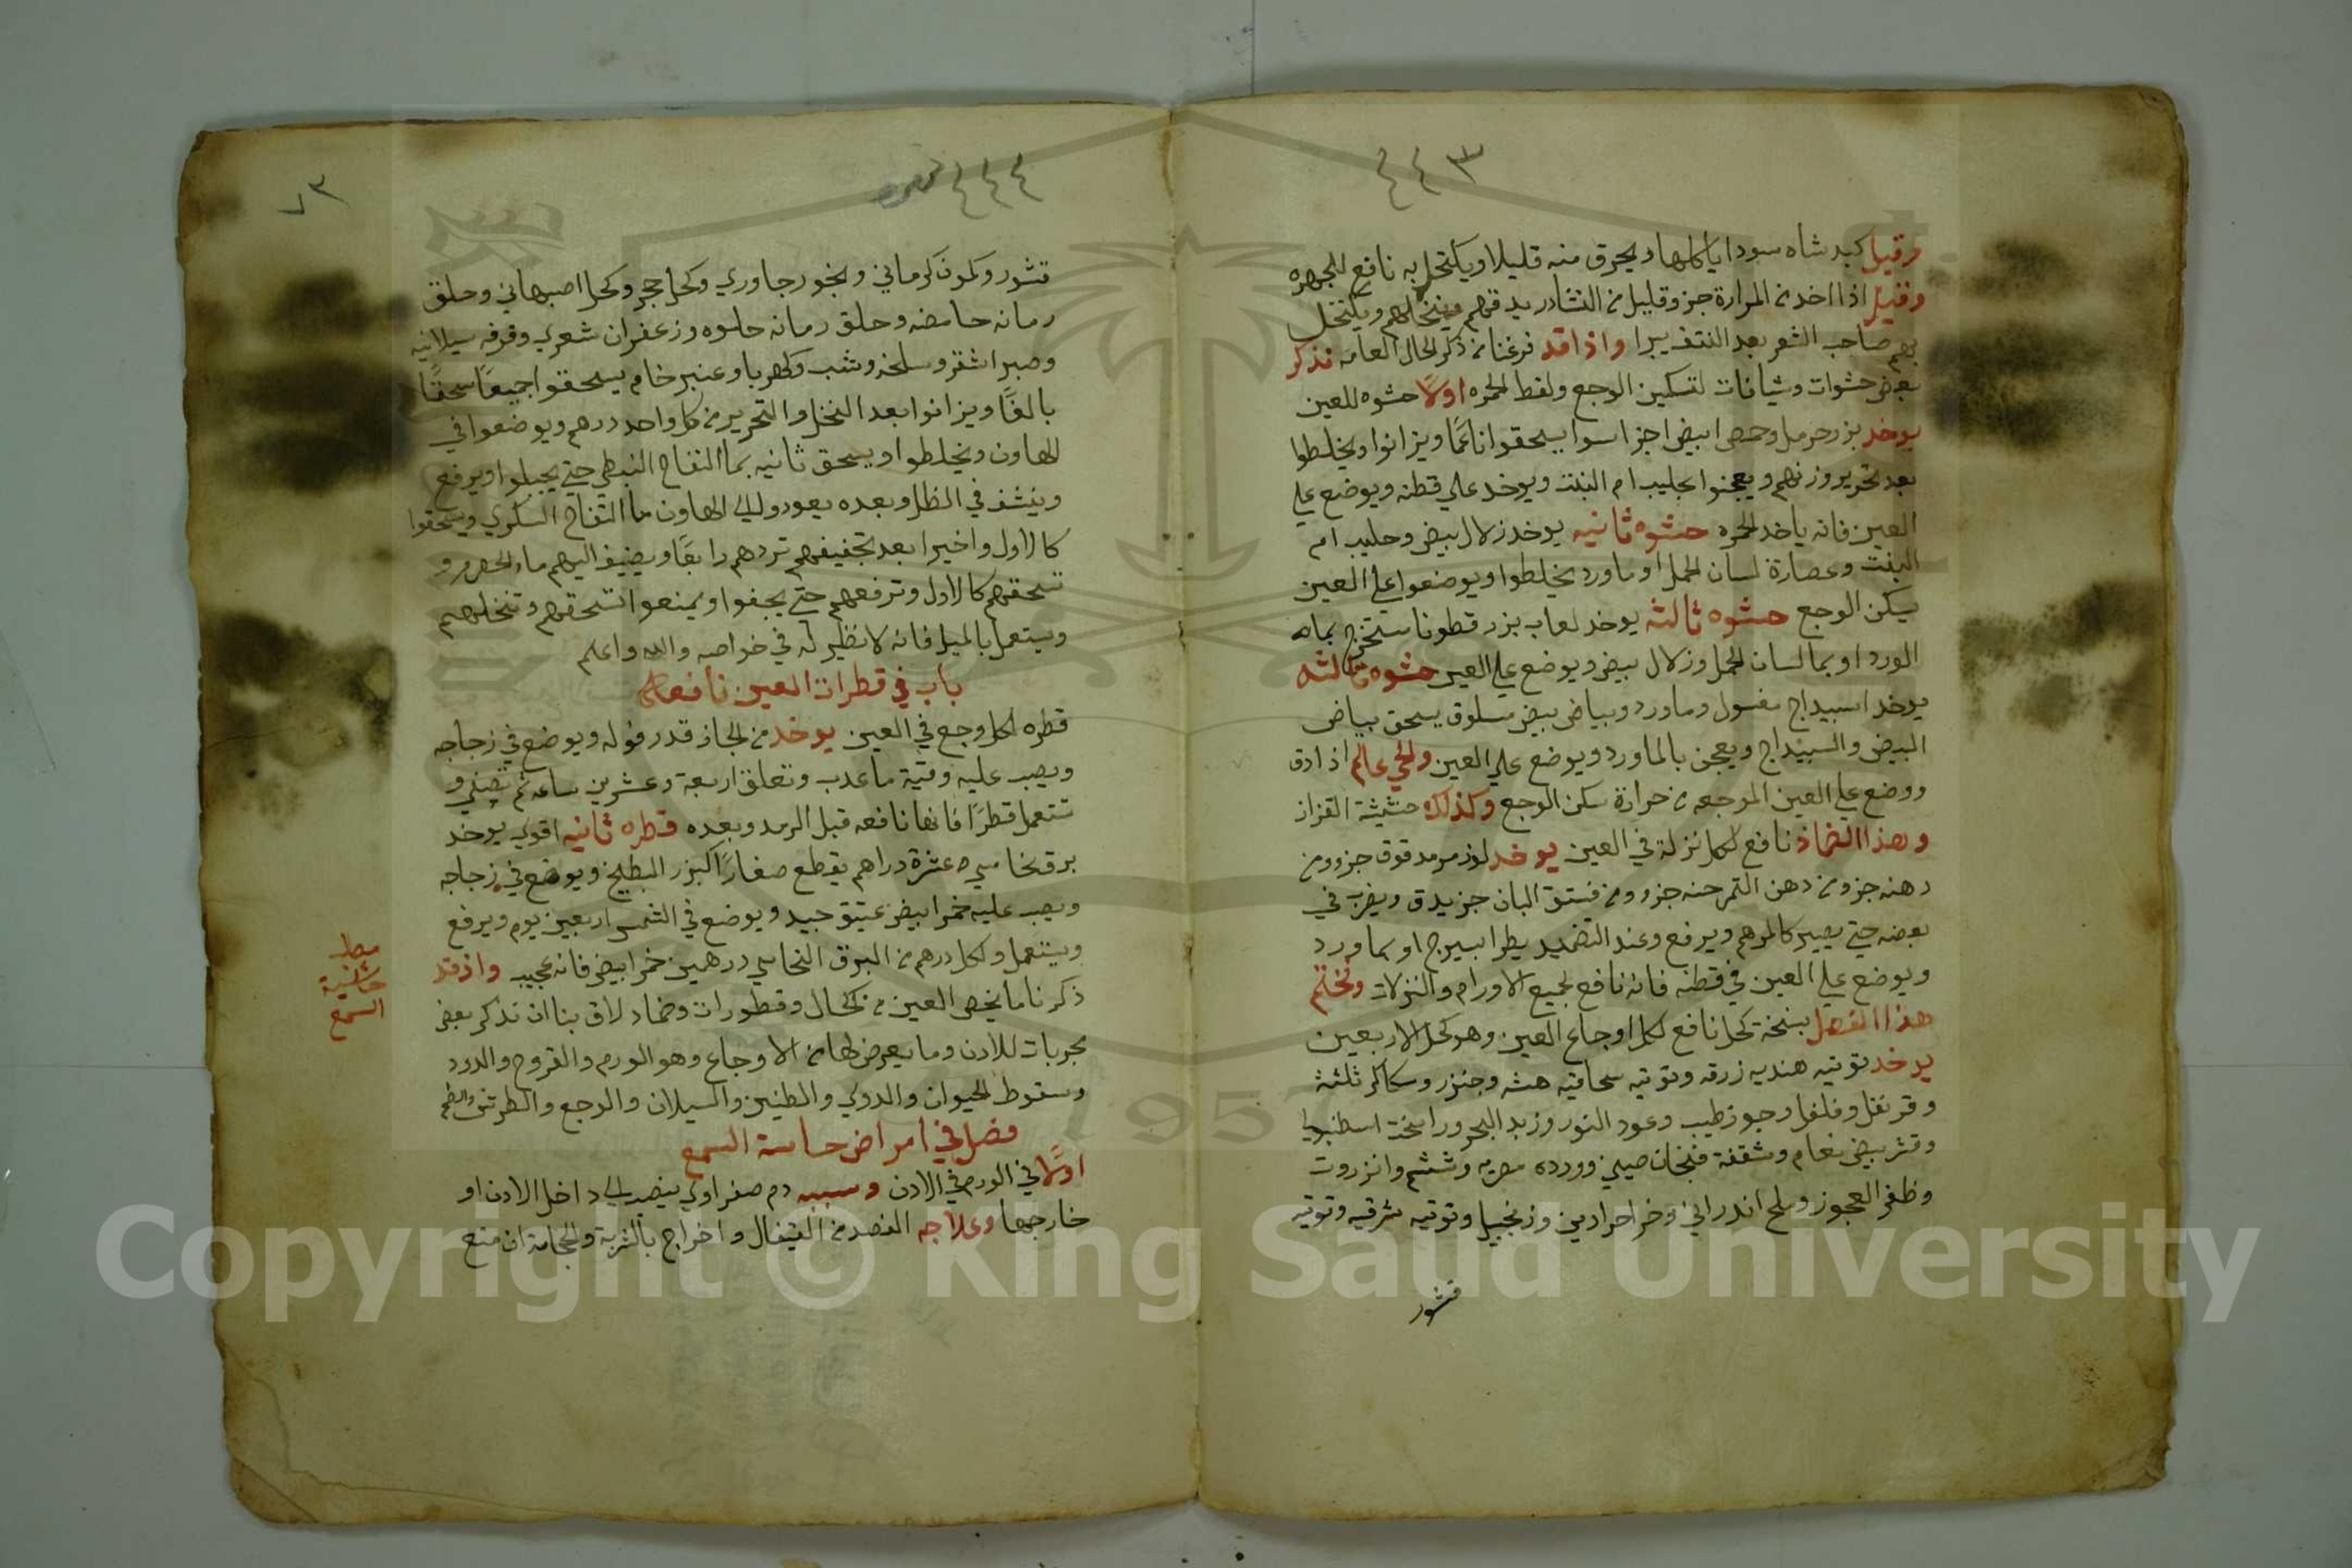 ٤٤٣
وقيل كبد شاه سودا ياكلها ويحرق منه قليلا ويكتحل به نافع للجهره
وقيل اذا اخد من المرارة جز وقليل من النشادر يدقهم وينخلهم ويكتحل
بهم صاحب الشعر بعد النتف يبرا واذا قد فرغنا من ذكر الحال العامه نذكر
بعض حشوات وشيافات لتسكين الوجع ولقط الحمره اولًا حشوه للعين
يوخد بزر حرمل وحمص ابيض اجزا سوا يسحقوا ناعمًا ويزانوا ويخلطوا
بعد تحرير وزنهم ويعجنوا بحليب ام البنت ويوخد علي قطنه ويوضع علي
العين فانه ياخد الحمره حشوه ثانيه يوخد زلال بيض وحليب ام
البنت وعصارة لسان الحمل او ماورد يخلطوا ويوضعوا علي العين
يسكن الوجع حشوه ثالثه يوخد لعاب بزر قطونا يستخرج بماه
الورد او بما لسان الحمل وزلال بيض ويوضع علي العين حشوه ثالثه
يوخد اسبيداج مغسول وماورد وبياض بيض مسلوق يسحق بياض
البيض والسبيداج ويعجن بالماورد ويوضع علي العين والحي عالم اذا دق
ووضع علي العين الموجعه من حرارة سكن الوجع وكذلك حشيشة القزاز
وهذا الضماد نافع لكل نزلة في العين يوخد لوز مر مدقوق جزو ومن
دهنه جزو من دهن التمرحنه جزو ومن فستق البان جز يدق ويضرب في
بعضه حتي يصير كالمرهم ويرفع وعند التضميد يطرا بسيرج او بماورد
ويوضع علي العين في قطنه فانه نافع لجميع الاورام والنزلات ونختم
هذا الفصل بنسخة كحل نافع لكل اوجاع العين وهو كحل الاربعين
يوخد توتيه هنديه زرقه وتوتيه سحاقيه هشه وجنزر وسكاكر ثلثة
وقرنفل وفلفل وجوز طيب وعود النور وزبد البحر وراسخت اسطنبولي
وقشر بيض نعام وشقفة فنجان صيني وورده مصريه وششم وانزروت
وظفر العجوز وملح اندراني وخرا حرادين وزنجبيل وتوتيه شرقيه وتوتيه
قشور
٤٤٤
٧٣
قشور وكمون كرماني وبخور جاوري وكحل حجر وكحل اصبهاني وحلق
رمانه حامضه وحلق رمانه حلوه وزعفران شعري وقرفه سيلانيه
وصبر اشقر وسلخه وشب وكهربا وعنبر خام يسحقوا جميعًا سحقًا
بالغًا ويزانوا بعد النخل والتحرير من كل واحد درهم ويوضعوا في
الهاون ويخلطوا ويسحق ثانيه بما التفاح النبطي حتي يجبلوا ويرفع
وينشف في الظل وبعده يعودو الي الهاون بما التفاح السكري ويسحقوا
كالاول واخيرا بعد تجفيفهم تردهم رابعًا ويضيف اليهم ماء الحصرم و
تسحقهم كالاول وترفعهم حتي يجفوا ويمنعوا تسحقهم وتنخلهم
ويستعمل بالميل فانه لا نظير له في خواصه والله واعلم
باب في قطرات العين نافعه
قطره لكل وجع في العين يوخد من الجاز قدر فوله ويوضع في زجاجه
ويصب عليه وقية ما عدب وتعلق اربعة وعشرين ساعه ثم تصفي و
تتعمل قطرًا فانها نافعه قبل الرمد وبعده قطره ثانيه اقوي يوخد
برق نحاسي ٥ عشرة دراهم يقطع صغارًا كبزر البطيخ ويوضع في زجاجه
ويصب عليه خمر ابيض عتيق جيد ويوضع في الشمس اربعين يوم ويرفع
ويستعمل ولكل درهم من البرق النحاسي درهمين خمر ابيض فانه عجيب واذ قد
ذكرنا ما يخص العين من كحال وقطورات وضماد لاق بنا ان نذكر بعض
مجربات للادن وما يعرض لها من الاوجاع وهو الورم والقروح والدود
وسقوط الحيوان والدوي والطنين والسيلان والوجع والطرش
فصل في امراض حاسة السمع
اولًا في الورم في الادن وسببه دم صفراوي ينصب الي داخل الادن او
خارجها وعلاجه الفصد من القيفال واخراج بالشربة والحجامة ان منع
مطلب
حاسة
السمع
Copyright © King Saud University
1957